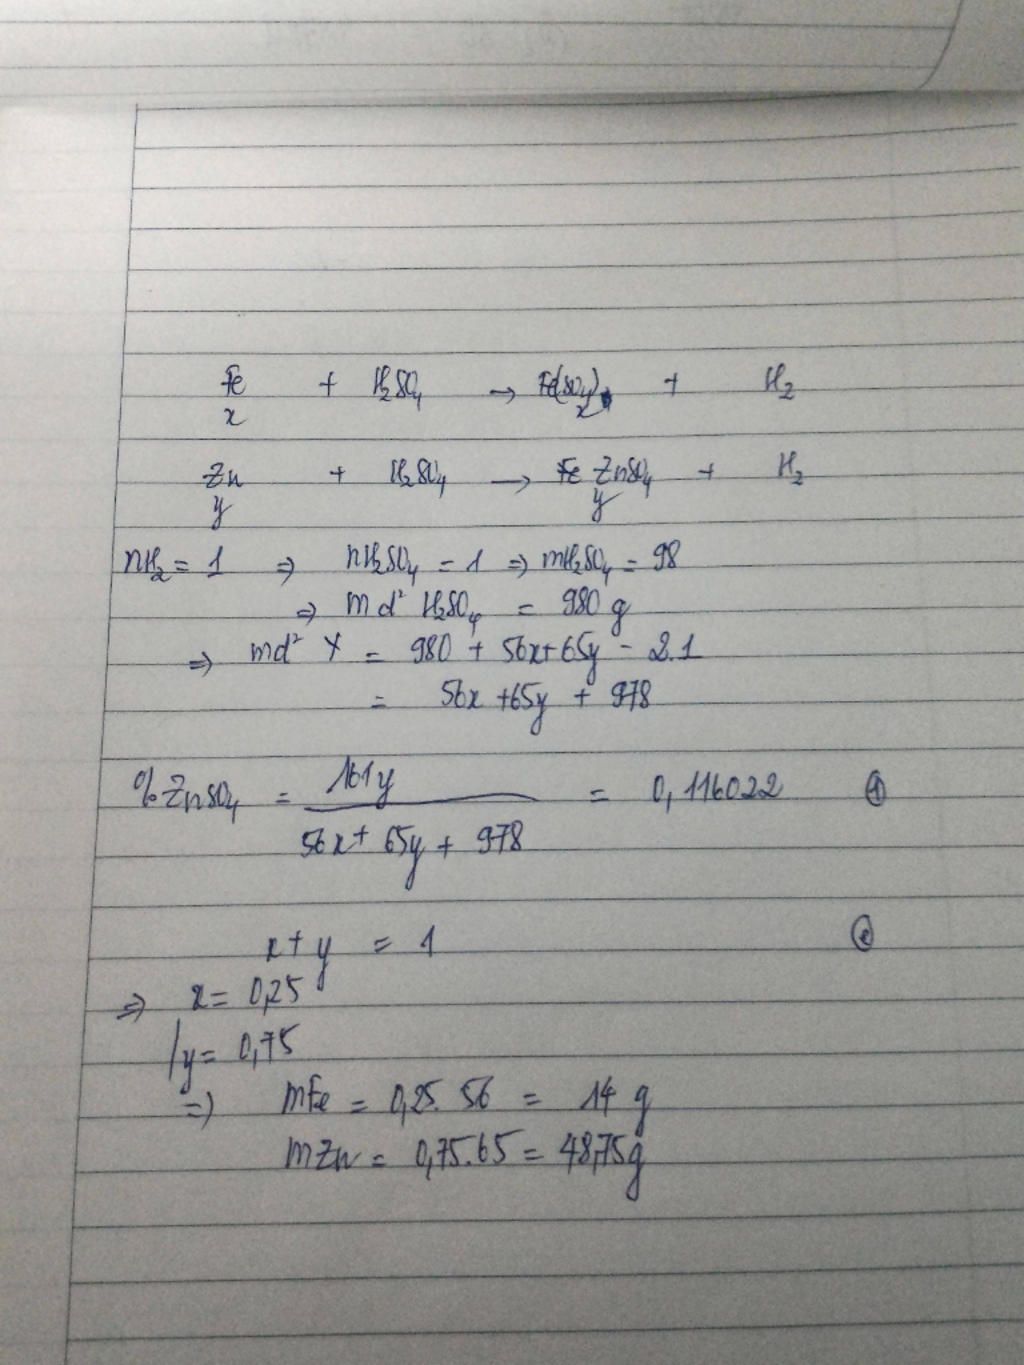 Fe + H2SO4 → Fe(SO4) + H2
x x
Zn + H2SO4 → Fe ZnSO4 + H2
y y
nH2 = 1 ⇒ nH2SO4 = 1 ⇒ mH2SO4 = 98
⇒ md² H2SO4 = 980 g
⇒ md² Y = 980 + 56x + 65y - 2.1
= 56x + 65y + 978
%ZnSO4 = 161y / 56x + 65y + 978 = 0,116022 ①
x + y = 1 ②
⇒ x = 0,25
y = 0,75
⇒ mFe = 0,25. 56 = 14 g
mZn = 0,75.65 = 48,75g